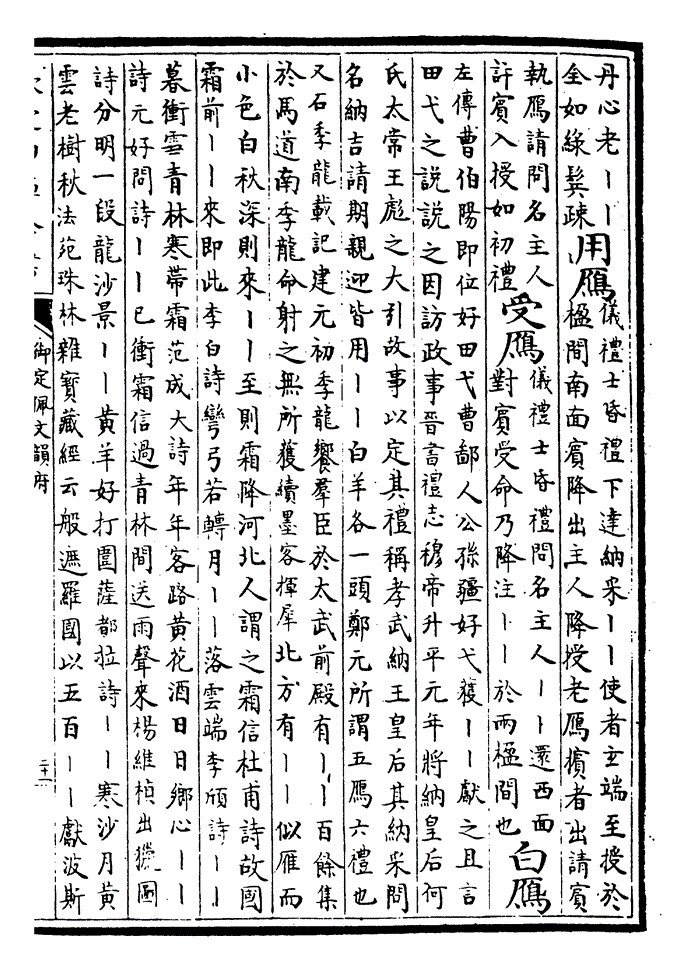 丹心老丨丨
全如綠鬂疎
用鴈
儀禮士昏禮下達納采丨丨使者玄端至授於
楹間南面賓降出主人降授老鴈擯者出請賓
執鴈請問名主人
許賓入授如初禮
受鴈
儀禮士昏禮問名主人丨丨還西面
對賓受命乃降注丨丨於兩楹間也
白鴈
左傳曹伯陽即位好田弋曹鄙人公孫彊好弋獲丨丨獻之且言
田弋之説説之因訪政事晉書禮志穆帝升平元年將納皇后何
氏太常王彪之大引故事以定其禮稱孝武納王皇后其納采問
名納吉請期親迎皆用丨丨白羊各一頭鄭元所謂五鴈六禮也
又石季龍載記建元初季龍饗羣臣於太武前殿有丨丨百餘集
於馬道南季龍命射之無所獲續墨客揮犀北方有丨丨似雁而
小色白秋深則來丨丨至則霜降河北人謂之霜信杜甫詩故國
霜前丨丨來即此李白詩彎弓若轉月丨丨落雲端李頎詩丨丨
暮衝雪青林寒帶霜范成大詩年年客路黄花酒日日鄉心丨丨
詩元好問詩丨丨已衝霜信過青林間送雨聲來楊維楨出獵圖
詩分明一段龍沙景丨丨黄羊好打圍薩都拉詩丨丨寒沙月黄
雲老樹秋法苑珠林雜寶藏經云般遮羅國以五百丨丨獻波斯
御定佩文韻府
二十一